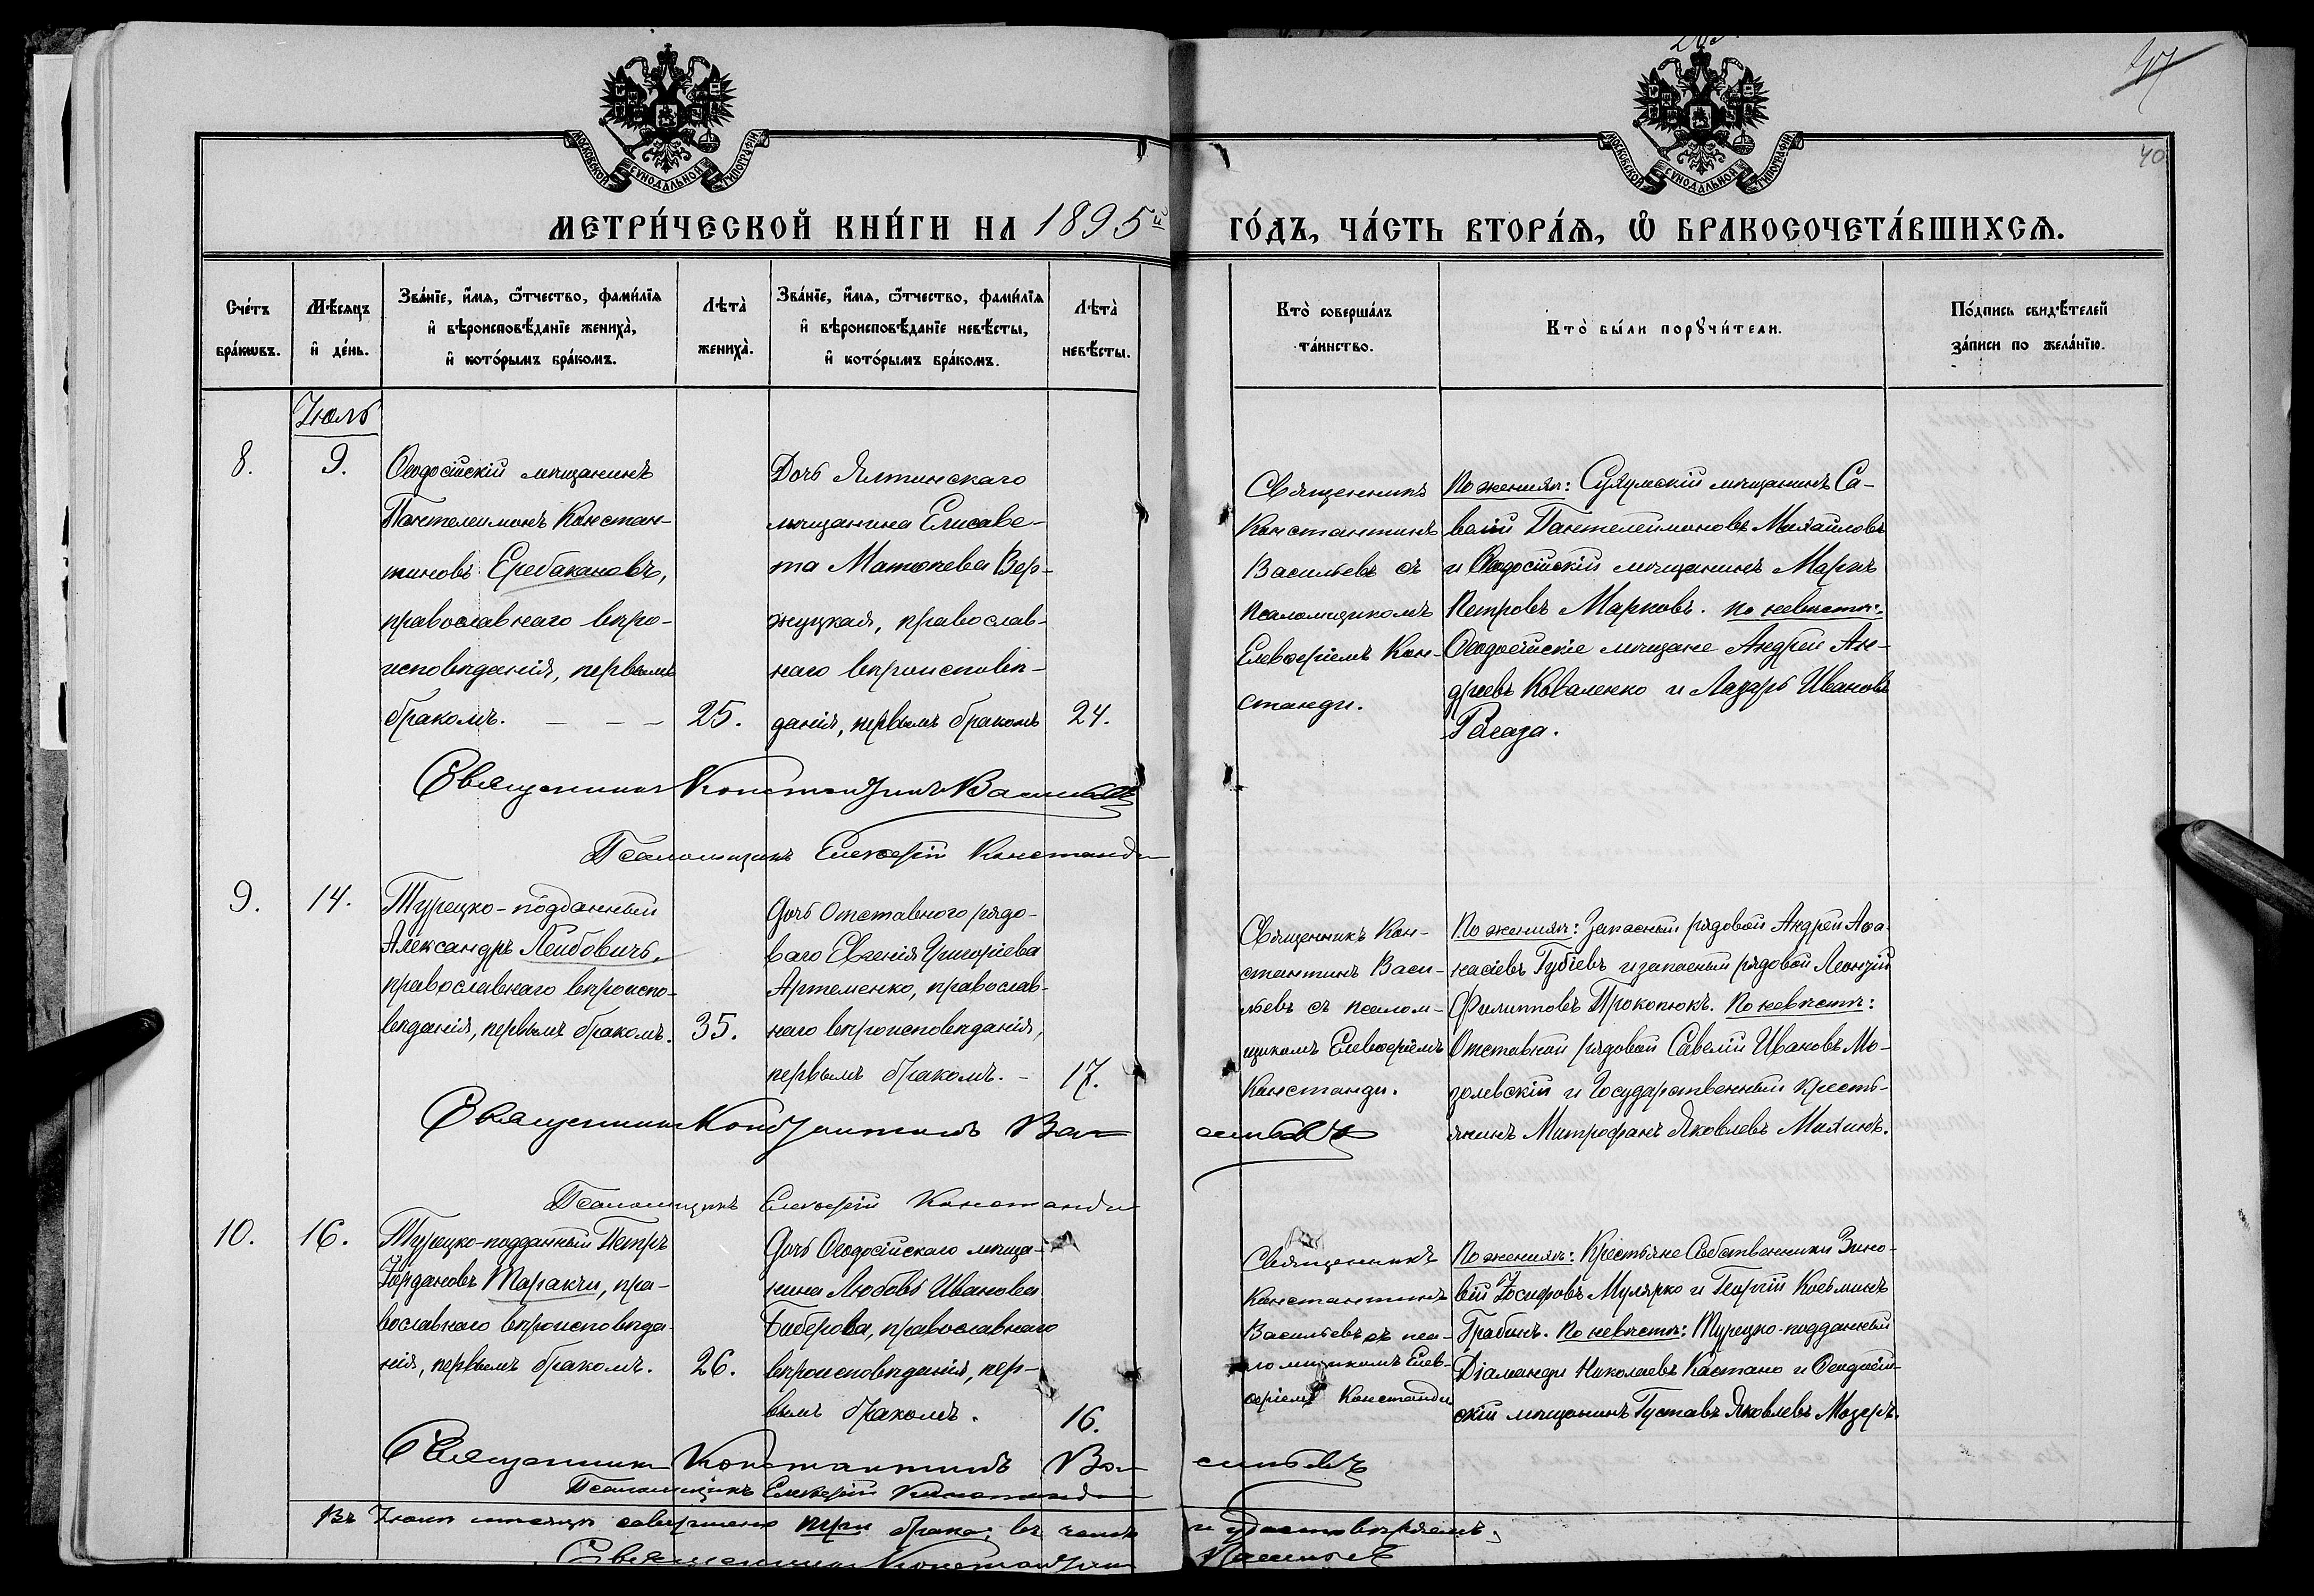 МОСКОВСКОЙ СѴНОДАЛЬНОЙ ТИПОГРАФІИ
МОСКОВСКОЙ СѴНОДАЛЬНОЙ ТИПОГРАФІИ
40
МЕТРИ́ЧЕСКОЙ КНИ́ГИ НА 1895й
ГО́ДЪ, ЧА́СТЬ ВТОРА́Ѧ, Ѿ БРАКОСОЧЕТА́ВШИХСѦ.
Сче́тъ бра́кѡвъ.
Мѣ́сѧцъ и де́нь.
Зва́нїе, и́мѧ, ѻ́тчество, фами́лїѧ
и вѣроисповѣ́данїе жениха̀,
и кото́рымъ бра́комъ.
Лѣта̀ жениха̀.
Зва́нїе, и́мѧ, ѻ́тчество, фами́лїѧ
и вѣроисповѣ́данїе невѣ́сты,
и кото́рымъ бра́комъ.
Лѣта̀ невѣ́сты.
Кто̀ соверша́лъ
та́инство.
Кто̀ бы́ли порꙋчи́тели.
По́дпись свидѣ́телей
за́писи по жела́нїю.
Іюль
8.
9.
Ѳеодосійскій мѣщанинъ
Пантелеимонъ Констан-
тиновъ Еребакановъ,
православнаго вѣро-
исповѣданія, первымъ
бракомъ. — — —
25.
Дочь Ялтинскаго
мѣщанина Елисаве-
та Матѳеева Вер-
жуцкая, православ-
наго вѣроисповѣ-
данія, первымъ бракомъ
24.
Священникъ
Константинъ
Васильевъ съ
псаломщикомъ
Елевѳеріемъ Кон-
станди.
По женихѣ: Сухумскій мѣщанинъ Са-
велій Пантелеимоновъ Михаиловъ
и Ѳеодосійскій мѣщанинъ Маркъ
Петровъ Марковъ. по невѣстѣ:
Ѳеодосійскіе мѣщане Андрей Ан-
дреевъ Коваленко и Лазарь Ивановъ
Священникъ Константинъ Васильевъ
Псаломщикъ Елевѳерій Констанди
9.
14.
Турецко-подданный
Александръ Лейбовичъ,
православнаго вѣроиспо-
вѣданія, первымъ бракомъ.
35.
Дочь Отставного рядо-
ваго Евгенія Григоріева
Артеменко, православ-
наго вѣроисповѣданія,
первымъ бракомъ. –
17.
Священникъ Кон-
стантинъ Васи-
льевъ съ псалом-
щикомъ Елевѳеріемъ
Констанди.
По женихѣ: Запасный рядовой Андрей Аѳа-
насіевъ Губіевъ и запасный рядовой Леонтій
Филипповъ Прокопюкъ. По невѣстѣ:
Отставной рядовой Савелій Ивановъ Мо-
золевскій и Государственный кресть-
янинъ Митрофанъ Яковлевъ Михинъ.
Священникъ Константинъ Васильевъ
Псаломщикъ Елевѳерій Констанди
10.
16.
Турецко-подданный Петръ
Іордановъ Таракчи, пра-
вославнаго вѣроисповѣда-
нія, первымъ бракомъ.
26.
Дочь Ѳеодосійскаго мѣща-
нина Любовь Иванова
Биберова, православнаго
вѣроисповѣданія, пер-
вымъ бракомъ.
16.
Священникъ
Константинъ
Васильевъ съ пса-
ломщикомъ Елев-
ѳеріемъ Констанди
По женихѣ: Крестьяне Собственники Зино-
вій Іосифовъ Мулярко и Георгій Косьминъ
Грабинъ. По невѣстѣ: Турецко-подданный
Діаманди Николаевъ Кастано и Ѳеодосій-
скій мѣщанинъ Густавъ Яковлевъ Мазеръ.
Священникъ Константинъ Васильевъ
Псаломщикъ Елевѳерій Констанди
Въ Іюлѣ мѣсяцѣ совершено три брака; въ чемъ и удостовѣряемъ,
Священникъ Константинъ Васильевъ